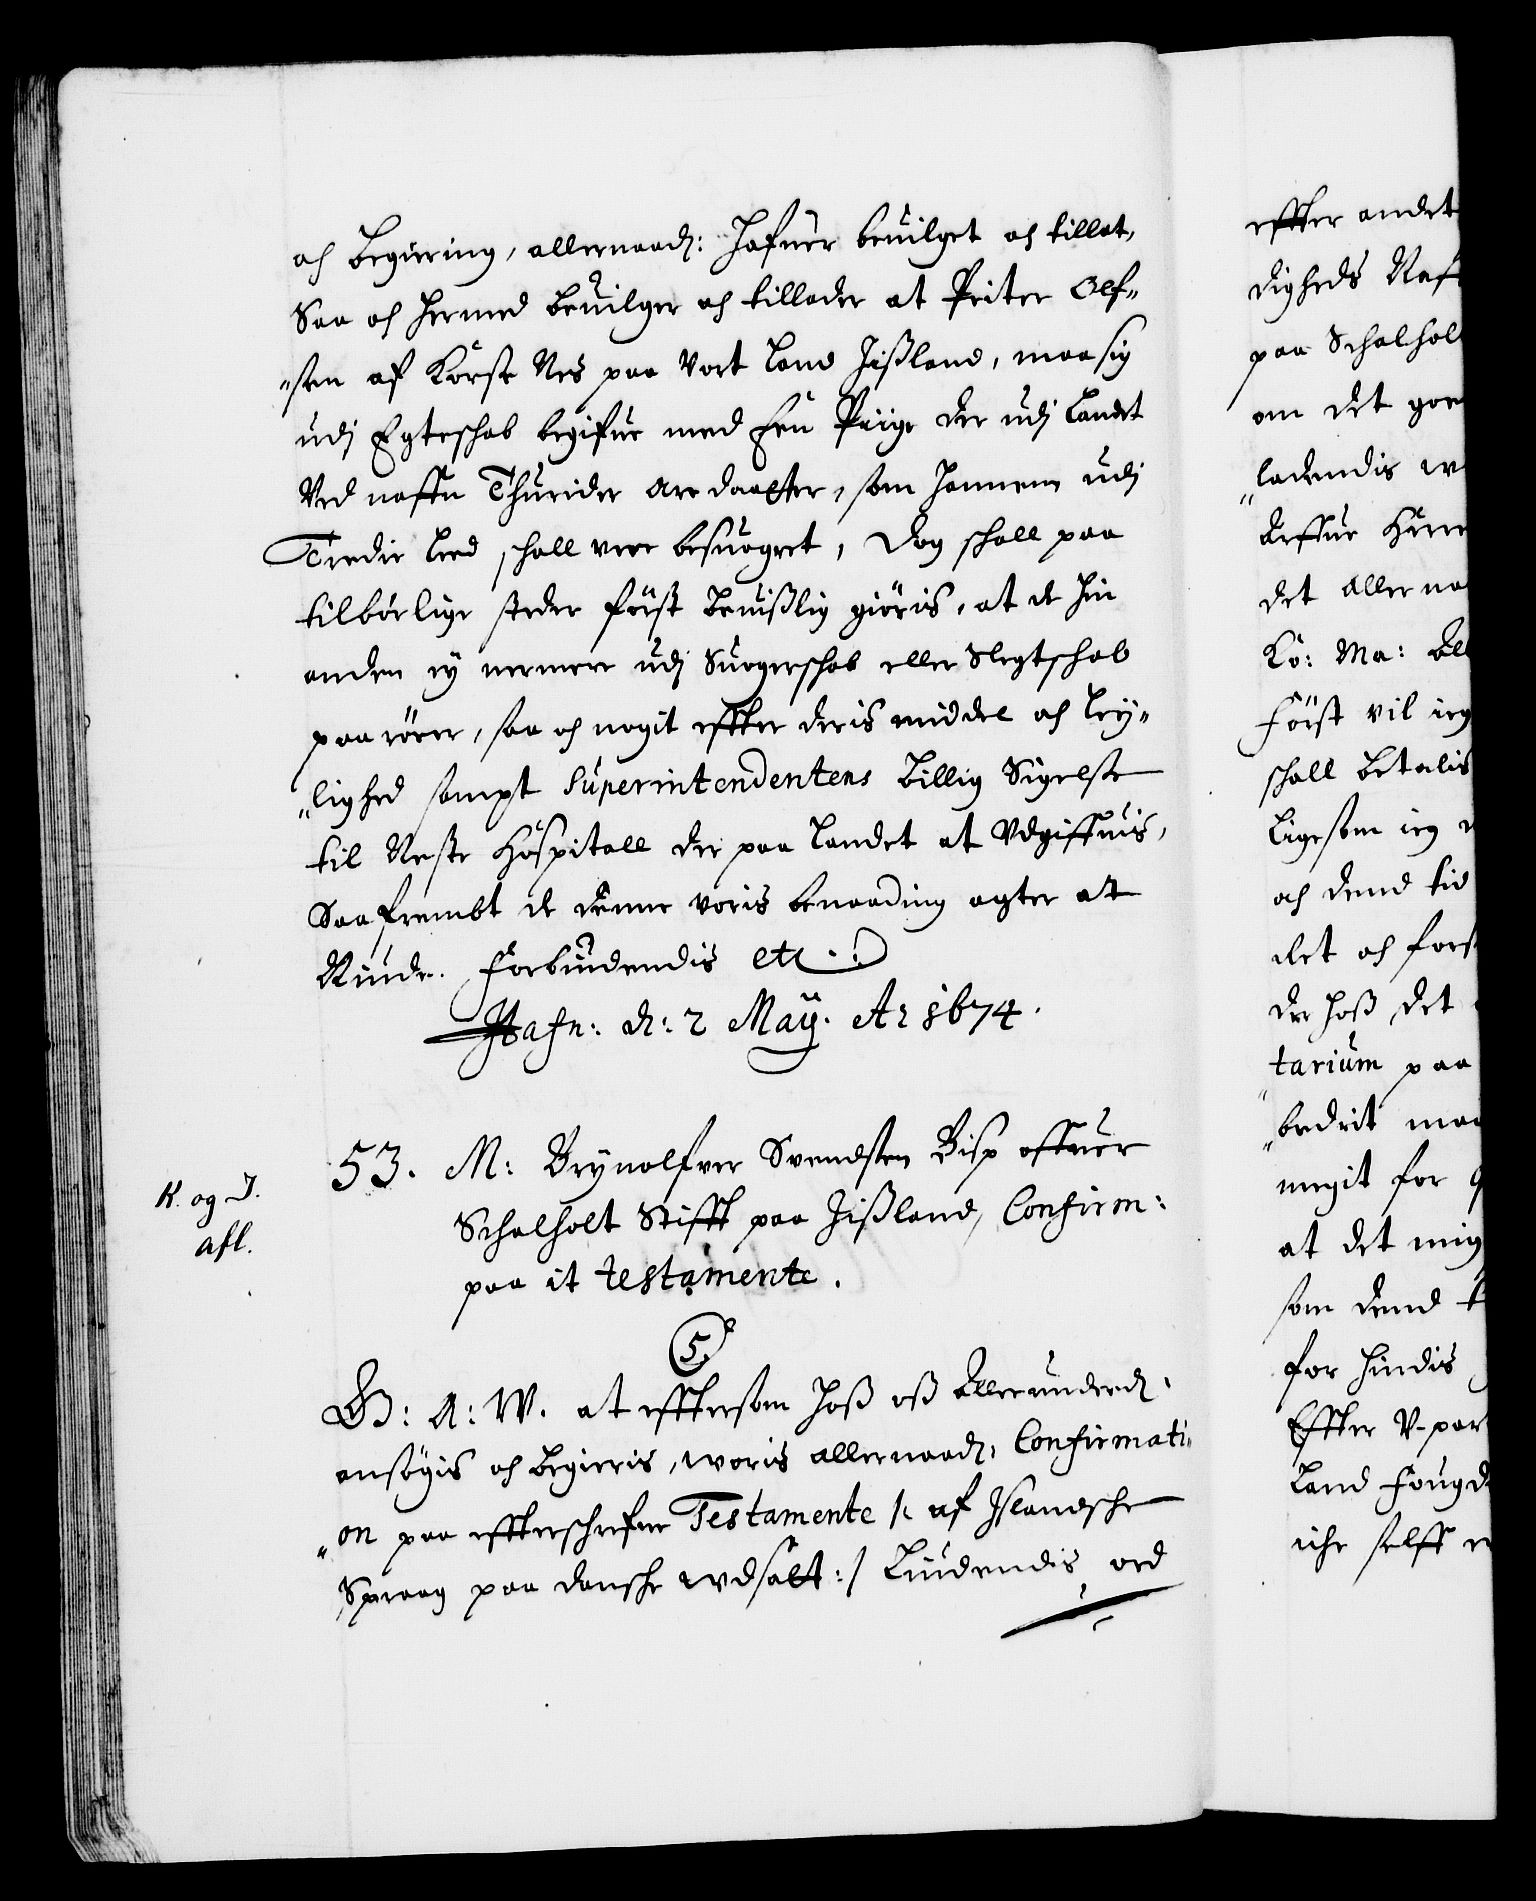 och begiering, allernaad: hafuer beuilget och tilladt,
Saa och hermed beuilger och tillader at Peiter Olf„
„sen af Korse Nes paa Vort Land Jißland, maa sig
udj Egteschab begifue med Een Piige der udj Landet
Ved naffn Thurider Are daatter, som hannem udj
Tredie Leed schall vere besuogret, dog schall paa
tilbörlige steder först beuißlig giöris, at de hin
anden ej nermere udj Suogerschab eller Slegtschab
paarörer, saa och nogit effter deris middel och Ley„
„lighed sampt Superintendentens billig Sigelse
til Neste Hospitall der paa Landet at Vdgiffuis,
Saafrembt de denne voris benaading agter at
Niude. Forbiudendis etc.
Hafn: d: 2 Maÿ. Ao 1674.
53. M: Brynolfver Svendsen Bisp offuer
K. og I.
Schalholt Stifft paa Jißland, Confirm:
afl.
paa it testamente.
5.
G: A: W. at efftersom hoß oß allerunderd:
ansögis och begieris, woris allernaad: Confirmati„
„on paa effterschrefne Testamente /: af Jslandsche
Spraag paa dansche udsatt :/ Liudendis ord
effter andet
digheds Naf
paa Schalhol
om det goe
„ladendis w
det allerna
Ko: Ma: All
Först vil ieg
schall betalis
Ligesom ieg
och dend tid
det och fors
der hoß det
tarium paa
„bedrit maa
megit for
at det mig
som dend
for hindis
Effter V-par
Land Fougd
iche selff